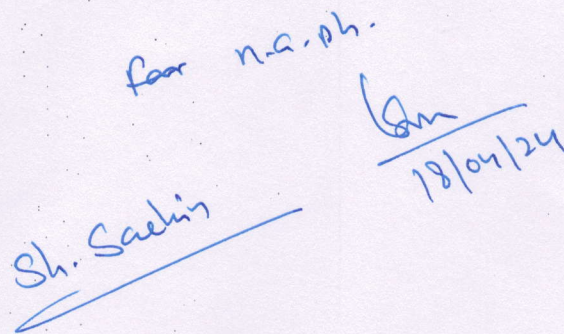 for n.a. ph.
18/04/24
Sh. Sachin